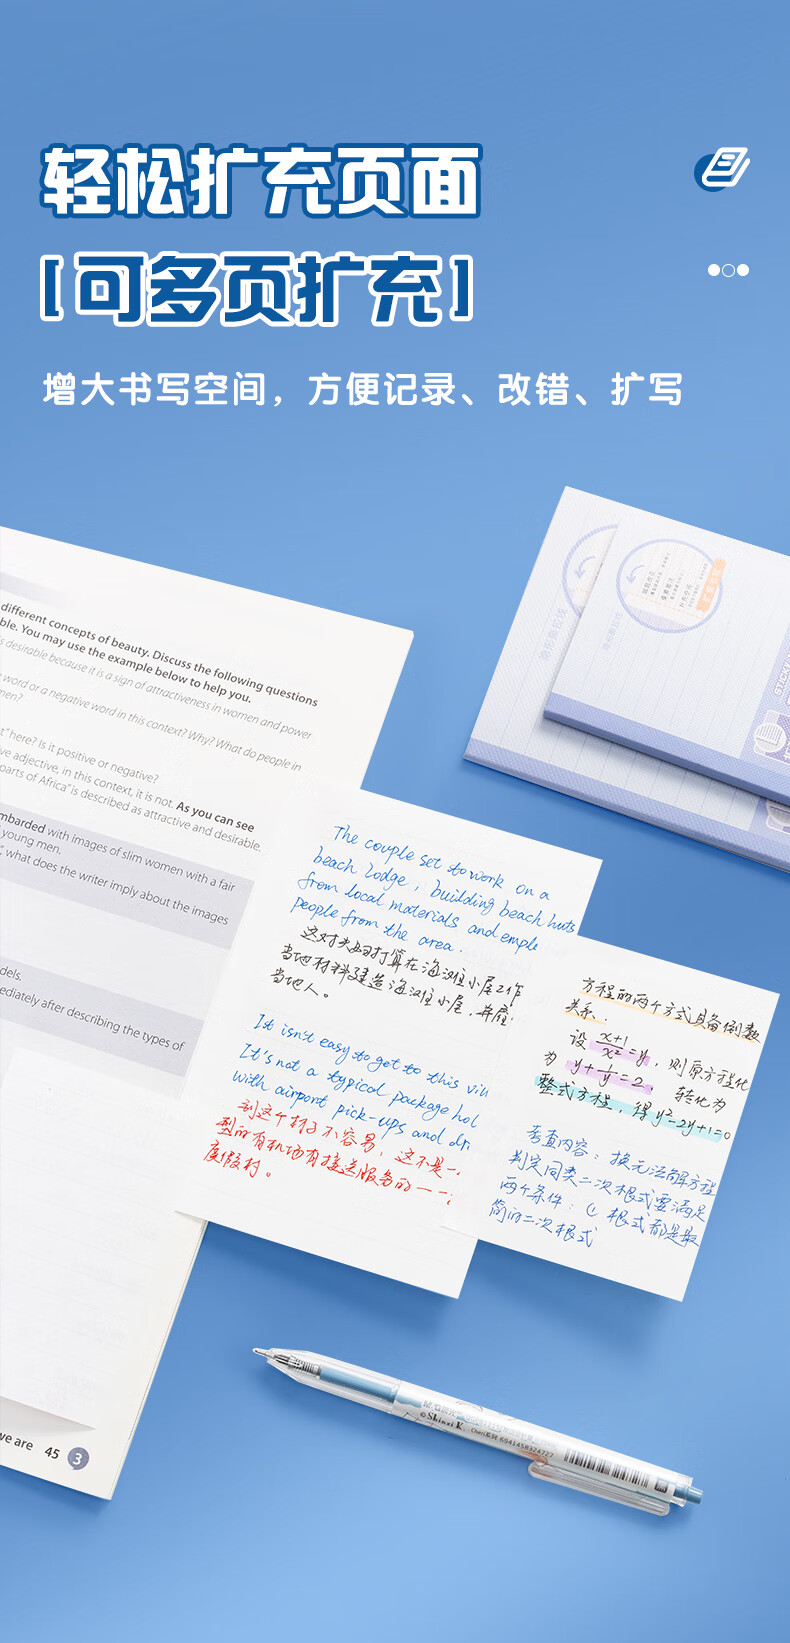 轻松扩充页面
[可多页扩充]
增大书写空间，方便记录、改错、扩写
different concepts of beauty. Discuss the following questions
ble. You may use the example below to help you.
s desirable because it is a sign of attractiveness in women and power
word or a negative word in this context? Why? What do people in
men?
t" here? Is it positive or negative?
ve adjective, in this context, it is not. As you can see
parts of Africa" is described as attractive and desirable.
mbarded with images of slim women with a fair
young men.
", what does the writer imply about the images
dels.
ediately after describing the types of
we are 45 3
The couple set to work on a
beach lodge, building beach huts
from local materials and emple
people from the area.
这对夫妇打算在海滩住小屋工作
当地材料建造海滩住小屋，并雇
当地人。
It isn't easy to get to this vill
It's not a typical package hol
with airport pick-ups and dri
到这个村子不容易，这不是一
型的有机场有接送服务的一一
度假村。
方程的两个方式具备倒数
关系：
设 x+1/x² = y，则原方程化
为 y+1/y=2，转化为
整式方程，得y²-2y+1=0
考查内容：换元法解方程
判定同类二次根式要满足
两个条件：① 根式都是最
简的二次根式
STICKY
©Shinzi K.
6941458324727